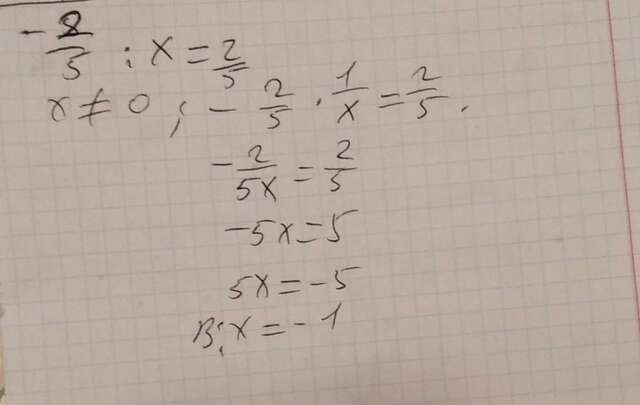 -2/5 : x = 2/5
x ≠ 0 ; - 2/5 · 1/x = 2/5.
- 2/5x = 2/5
-5x = 5
5x = -5
В: x = -1